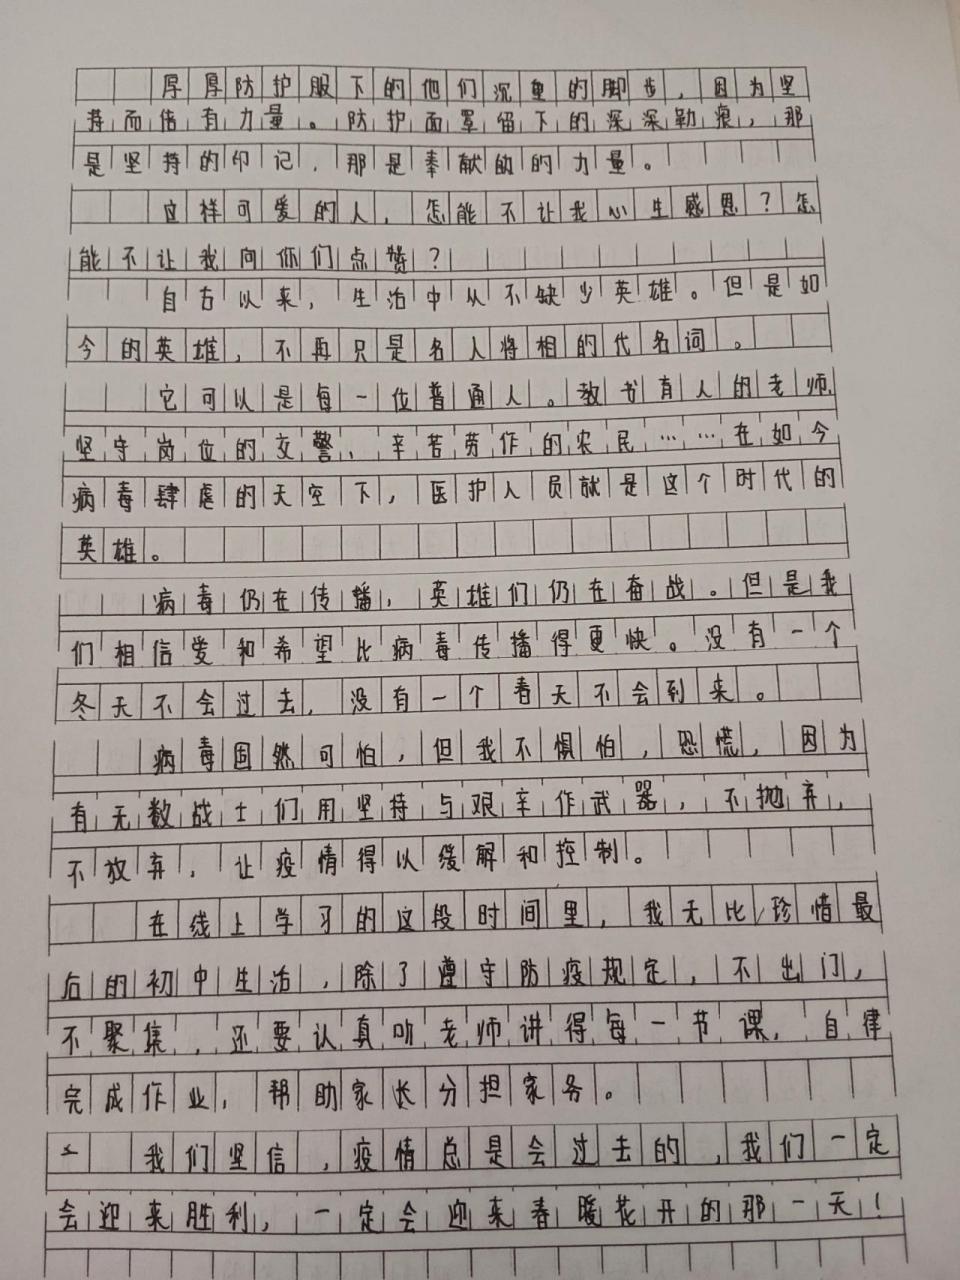 厚厚防护服下的他们沉重的脚步，因为坚
持而倍有力量。防护面罩留下的深深勒痕，那
是坚持的印记，那是奉献的的力量。
这样可爱的人，怎能不让我心生感恩？怎
能不让我向你们点赞？
自古以来，生活中从不缺少英雄。但是如
今的英雄，不再只是名人将相的代名词。
它可以是每一位普通人。教书育人的老师，
坚守岗位的交警、辛苦劳作的农民……在如今
病毒肆虐的天空下，医护人员就是这个时代的
英雄。
病毒仍在传播，英雄们仍在奋战。但是我
们相信爱和希望比病毒传播得更快。没有一个
冬天不会过去，没有一个春天不会到来。
病毒固然可怕，但我不惧怕，恐慌，因为
有无数战士们用坚持与艰辛作武器，不抛弃，
不放弃，让疫情得以缓解和控制。
在线上学习的这段时间里，我无比珍惜最
后的初中生活，除了遵守防疫规定，不出门，
不聚集，还要认真听老师讲得每一节课，自律
完成作业，帮助家长分担家务。
我们坚信，疫情总是会过去的，我们一定
会迎来胜利，一定会迎来春暖花开的那一天！